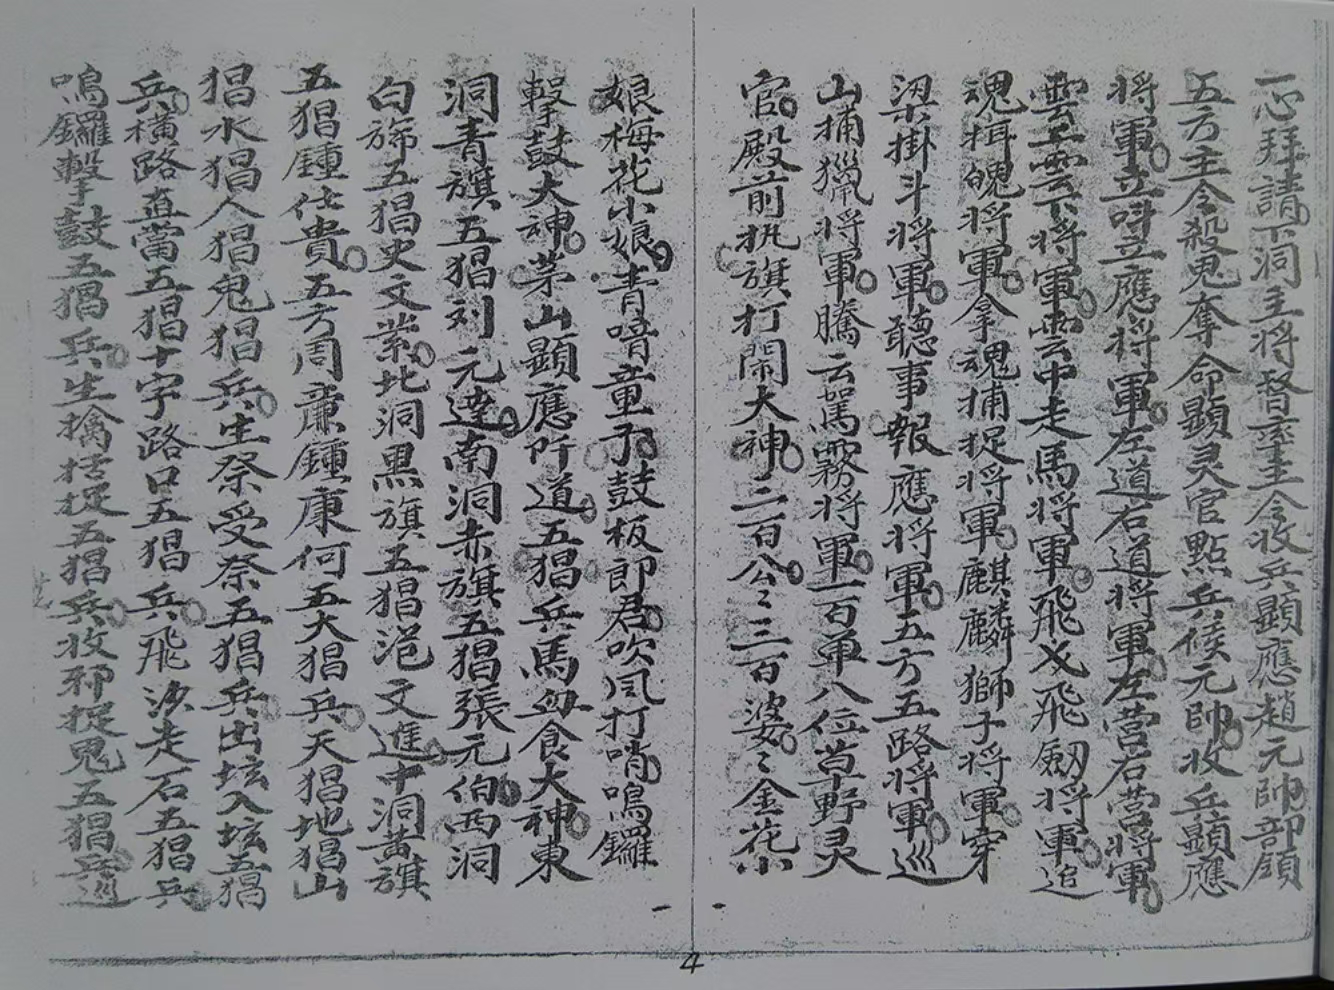 一心拜請下洞主將督率主令收兵顯應趙元帥部領
五方主令殺鬼奪命顯灵官點兵候元帥收兵顯應
将軍立呌立應将軍左道右道将軍左营右营将軍
雲上雲下将軍雲中走馬将軍飛义飛劔将軍追
魂緝魄将軍拿魂捕捉将軍麒麟獅子将軍穿
梁掛斗将軍聽事報應将軍五方五路将軍巡
山捕獵将軍騰云駕霧将軍一百单八位草野灵
官殿前执旗打鬧大神二百公〻三百婆〻金花小
娘梅花小娘青暗童子鼓板郎君吹风打哨鳴鑼
擊鼓大神茅山顯應阡道五猖兵馬血食大神東
洞青旗五猖刘元達南洞赤旗五猖張元伯西洞
白旆五猖史文業北洞黒旗五猖范文進中洞黃旗
五猖鍾仕貴五方周康鍾康何五大猖兵天猖地猖山
猖水猖人猖鬼猖兵生祭受祭五猖兵出坛入坛五猖
兵橫路直當五猖十字路口五猖兵飛沙走石五猖兵
鳴鑼擊鼓五猖兵生擒括捉五猖兵收邪捉鬼五猖兵巡
4